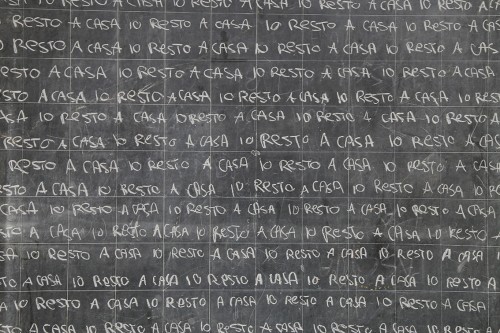 RESTO A CASA IO RESTO A CASA IO RESTO A CASA
RESTO A CASA IO RESTO A CASA IO RESTO A CASA IO RESTO
RESTO A CASA IO RESTO A CASA IO RESTO A CASA IO RESTO A CASA
RESTO A CASA IO RESTO A CASA IO RESTO A CASA IO RESTO A CASA
STO A CASA IO RESTO A CASA IO RESTO A CASA IO RESTO A CASA IO RESTO
ASA IO RESTO A CASA IO RESTO A CASA IO RESTO A CASA IO RESTO A CASA
RESTO A CASA IO RESTO A CASA IO RESTO A CASA IO RESTO A CASA
RESTO A CASA IO RESTO A CASA IO RESTO A CASA IO RESTO A CASA
STO A CASA IO RESTO A CASA IO RESTO A CASA IO RESTO A CASA IO
CASA IO RESTO A CASA IO RESTO A CASA IO RESTO A CASA IO RESTO A CASA
STO A CASA IO RESTO A CASA IO RESTO A CASA IO RESTO A CASA IO RESTO A
SA IO RESTO A CASA IO RESTO A CASA IO RESTO A CASA IO RESTO A CASA IO
TO A CASA IO RESTO A CASA IO RESTO A CASA IO RESTO A CASA IO RESTO A CASA
A IO RESTO A CASA IO RESTO A CASA IO RESTO A CASA IO RESTO A CASA
RESTO A CASA IO RESTO A CASA IO RESTO A CASA IO RESTO A CASA